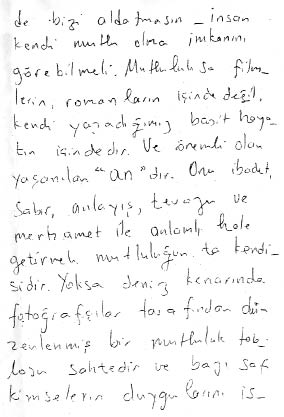 de bizi aldatmasın _ insan
kendi mutlu olma imkanını
görebilmeli. Mutluluksa film-
lerin, romanların içinde değil,
kendi yaşadığımız basit haya-
tın içindedir. Ve önemli olan
yaşanılan "an" dır. Onu ibadet,
sabır, anlayış, tevazu ve
merhamet ile anlamlı hale
getirmek mutluluğun ta kendi-
sidir. Yoksa deniz kenarında
fotoğrafçılar tarafından dü-
zenlenmiş bir mutluluk tab-
losu sahtedir ve bazı saf
kimselerin duygularını is-